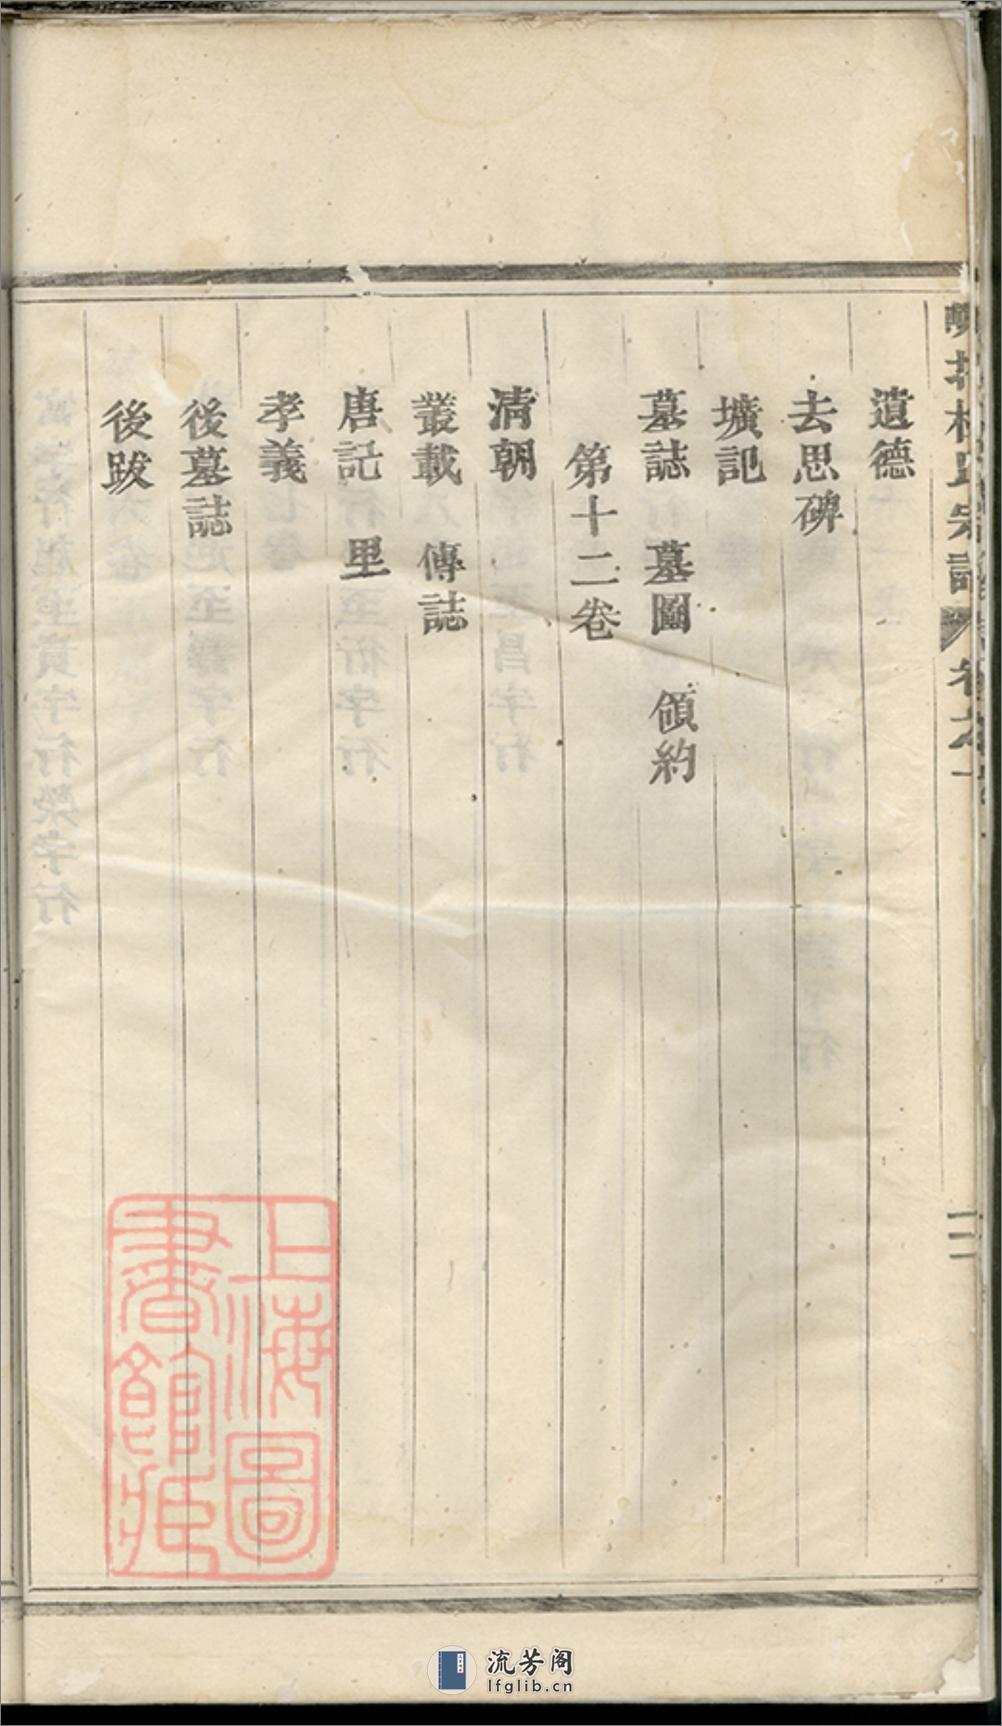 遺德
去思碑
壙記
墓誌 墓圖 領約
第十二卷
清朝
叢載 傳誌
唐記 里
孝義
後墓誌
後跋
上海圖
書館藏
流芳阁
lfglib.cn